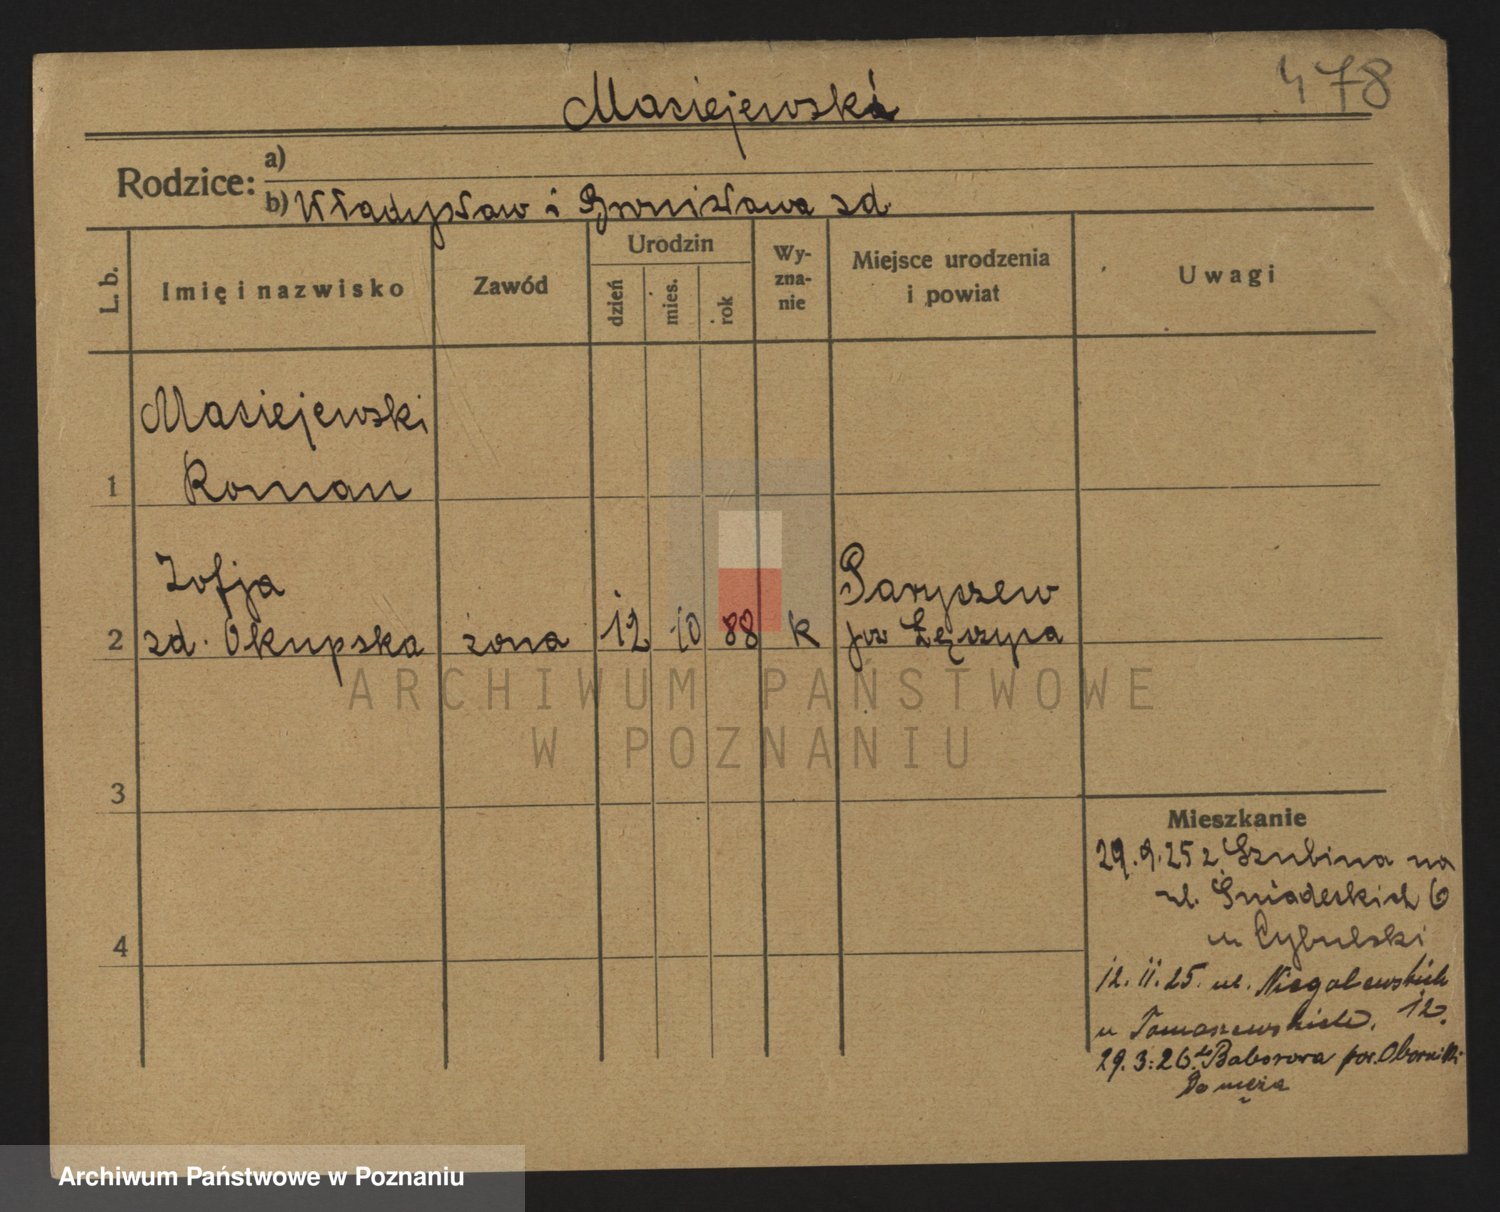 478
Maciejewski
Rodzice:
a)
b) Władysław i Bronisława zd.
L. b.
Imię i nazwisko
Zawód
Urodzin
dzień
mies.
rok
Wy-
zna-
nie
Miejsce urodzenia
i powiat
Uwagi
Maciejewski
1
Roman
Zofja
2
zd. Okupska
żona
12
10
88
k
Paryszew
pow Łęczyca
3
4
Mieszkanie
29.9.25 z Szubina na
ul. Śniadeckich 6
u Cybulski
12.11.25. ul. Niegolewskich
12.
u Tomaszewskich.
29.3.26. Baborowa pow. Oborniki
do męża
ARCHIWUM PAŃSTWOWE
W POZNANIU
Archiwum Państwowe w Poznaniu